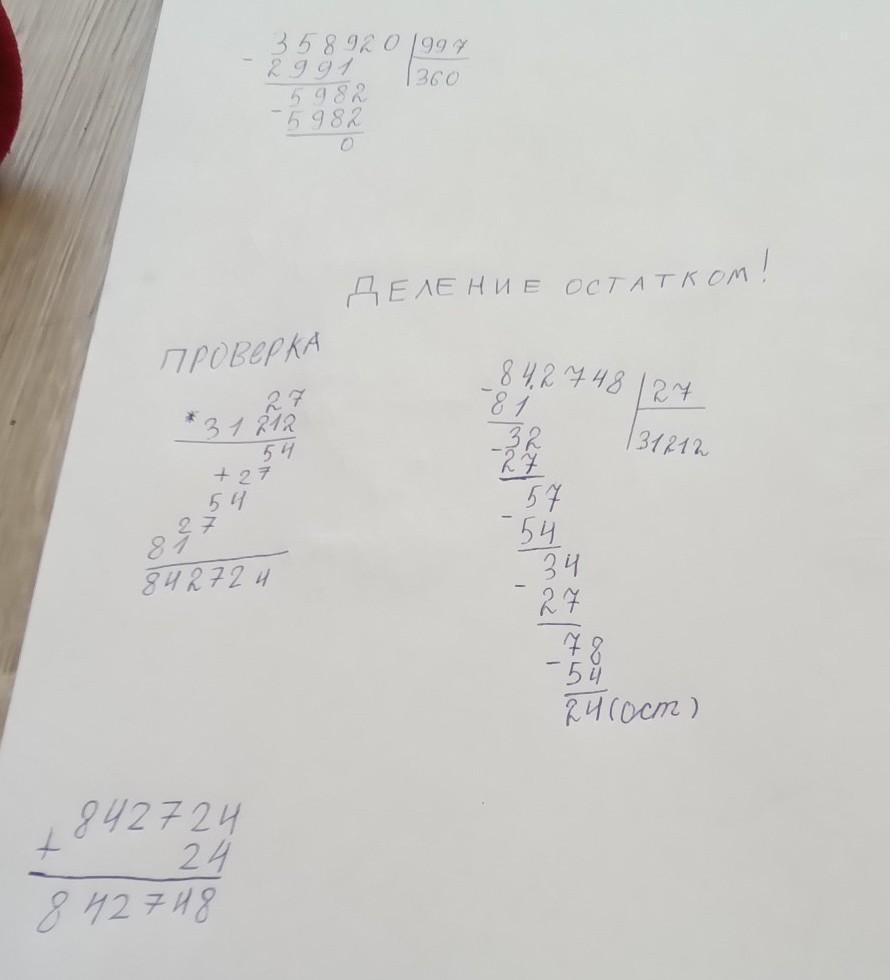 358920 | 997
- 2991 360
5982
- 5982
0
ДЕЛЕНИЕ ОСТАТКОМ!
ПРОВЕРКА
27
* 31212
54
+ 27
54
27
81
842724
- 842748 | 27
81 31212
32
- 27
57
- 54
34
- 27
78
- 54
24(ост)
842724
+ 24
842748